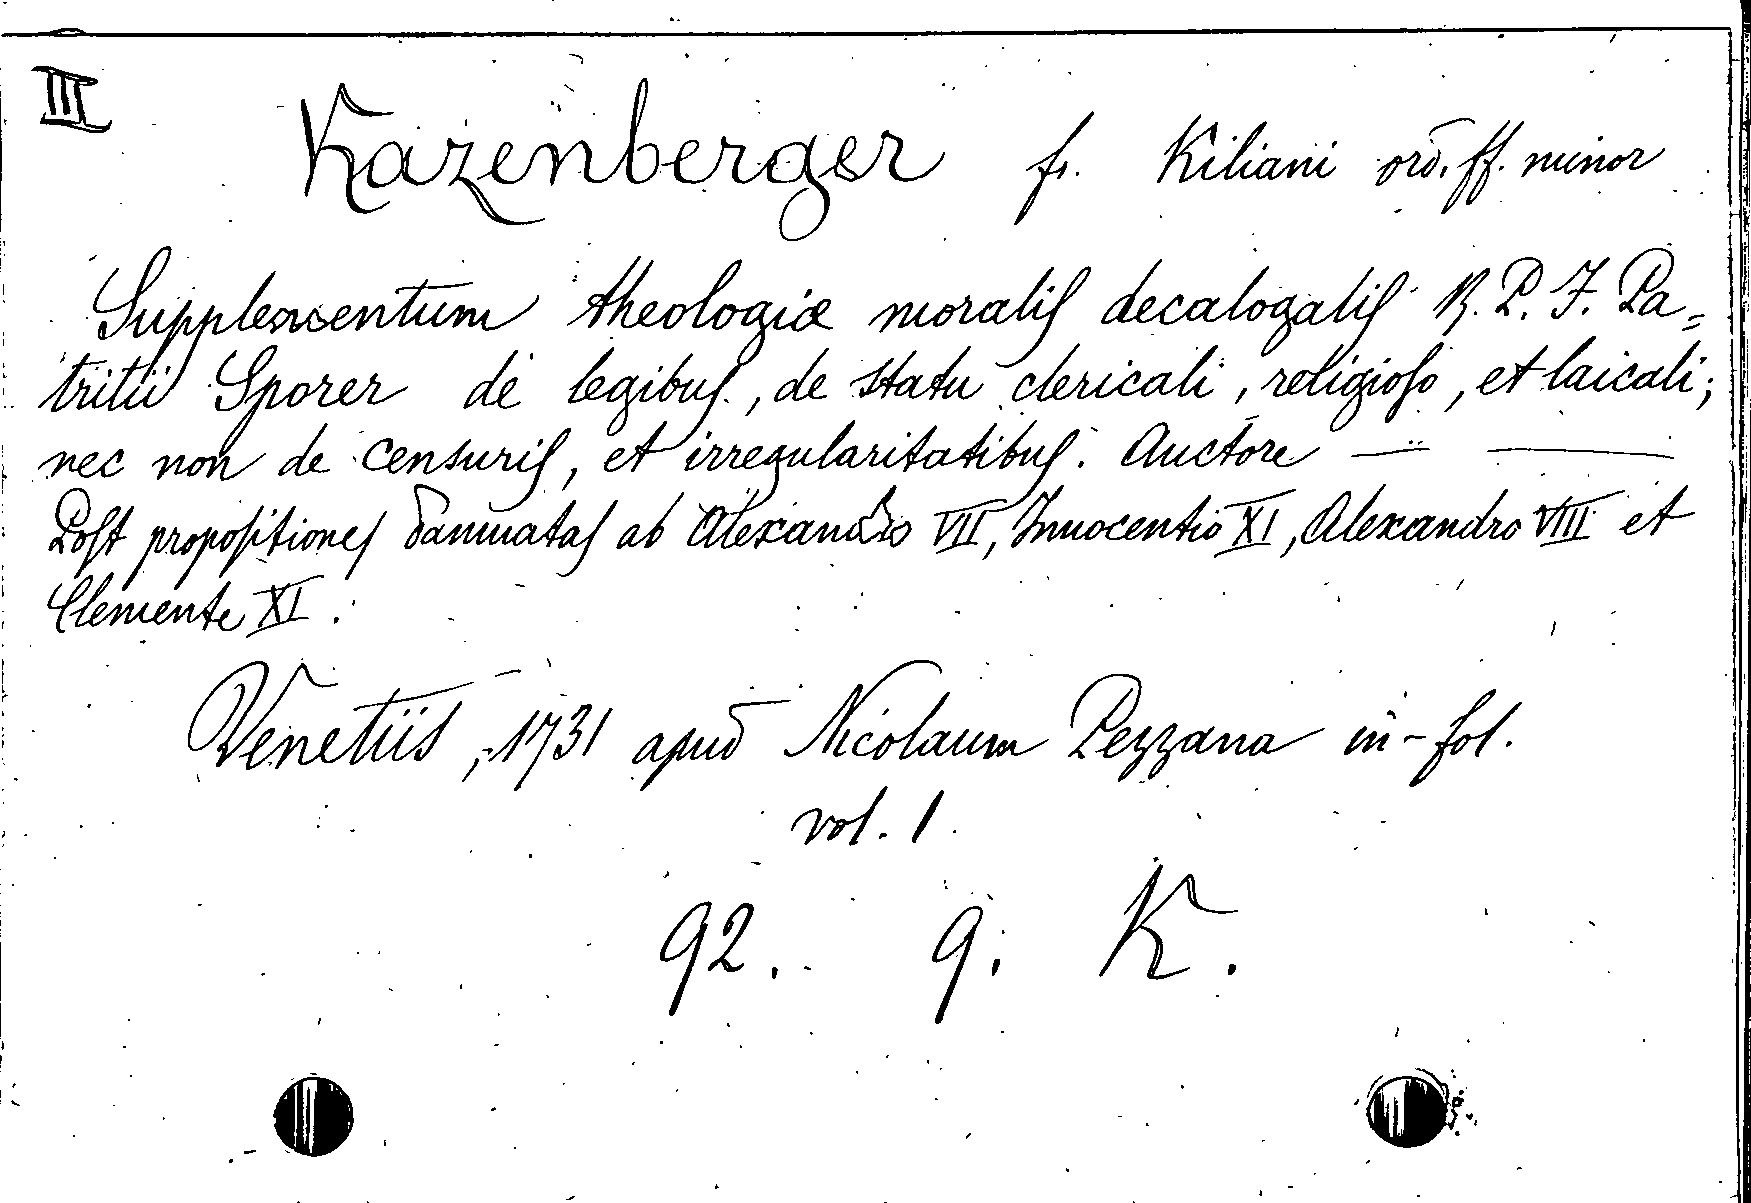 III
Kazenberger fr. Kiliani ord. ff. minor
Supplementum theologiæ moralis decalogalis R. P. F. Pa=
tritii Sporer de legibus, de statu clericali, religioso, et laicali;
nec non de censuris, et irregularitatibus. Auctore — —
Post propositiones damnatas ab Alexandro VII, Innocentio XI, Alexandro VIII et
Clemente XI.
Venetiis, 1731 apud Nicolaum Pezzana in-fol.
vol. 1
92. 9. K.